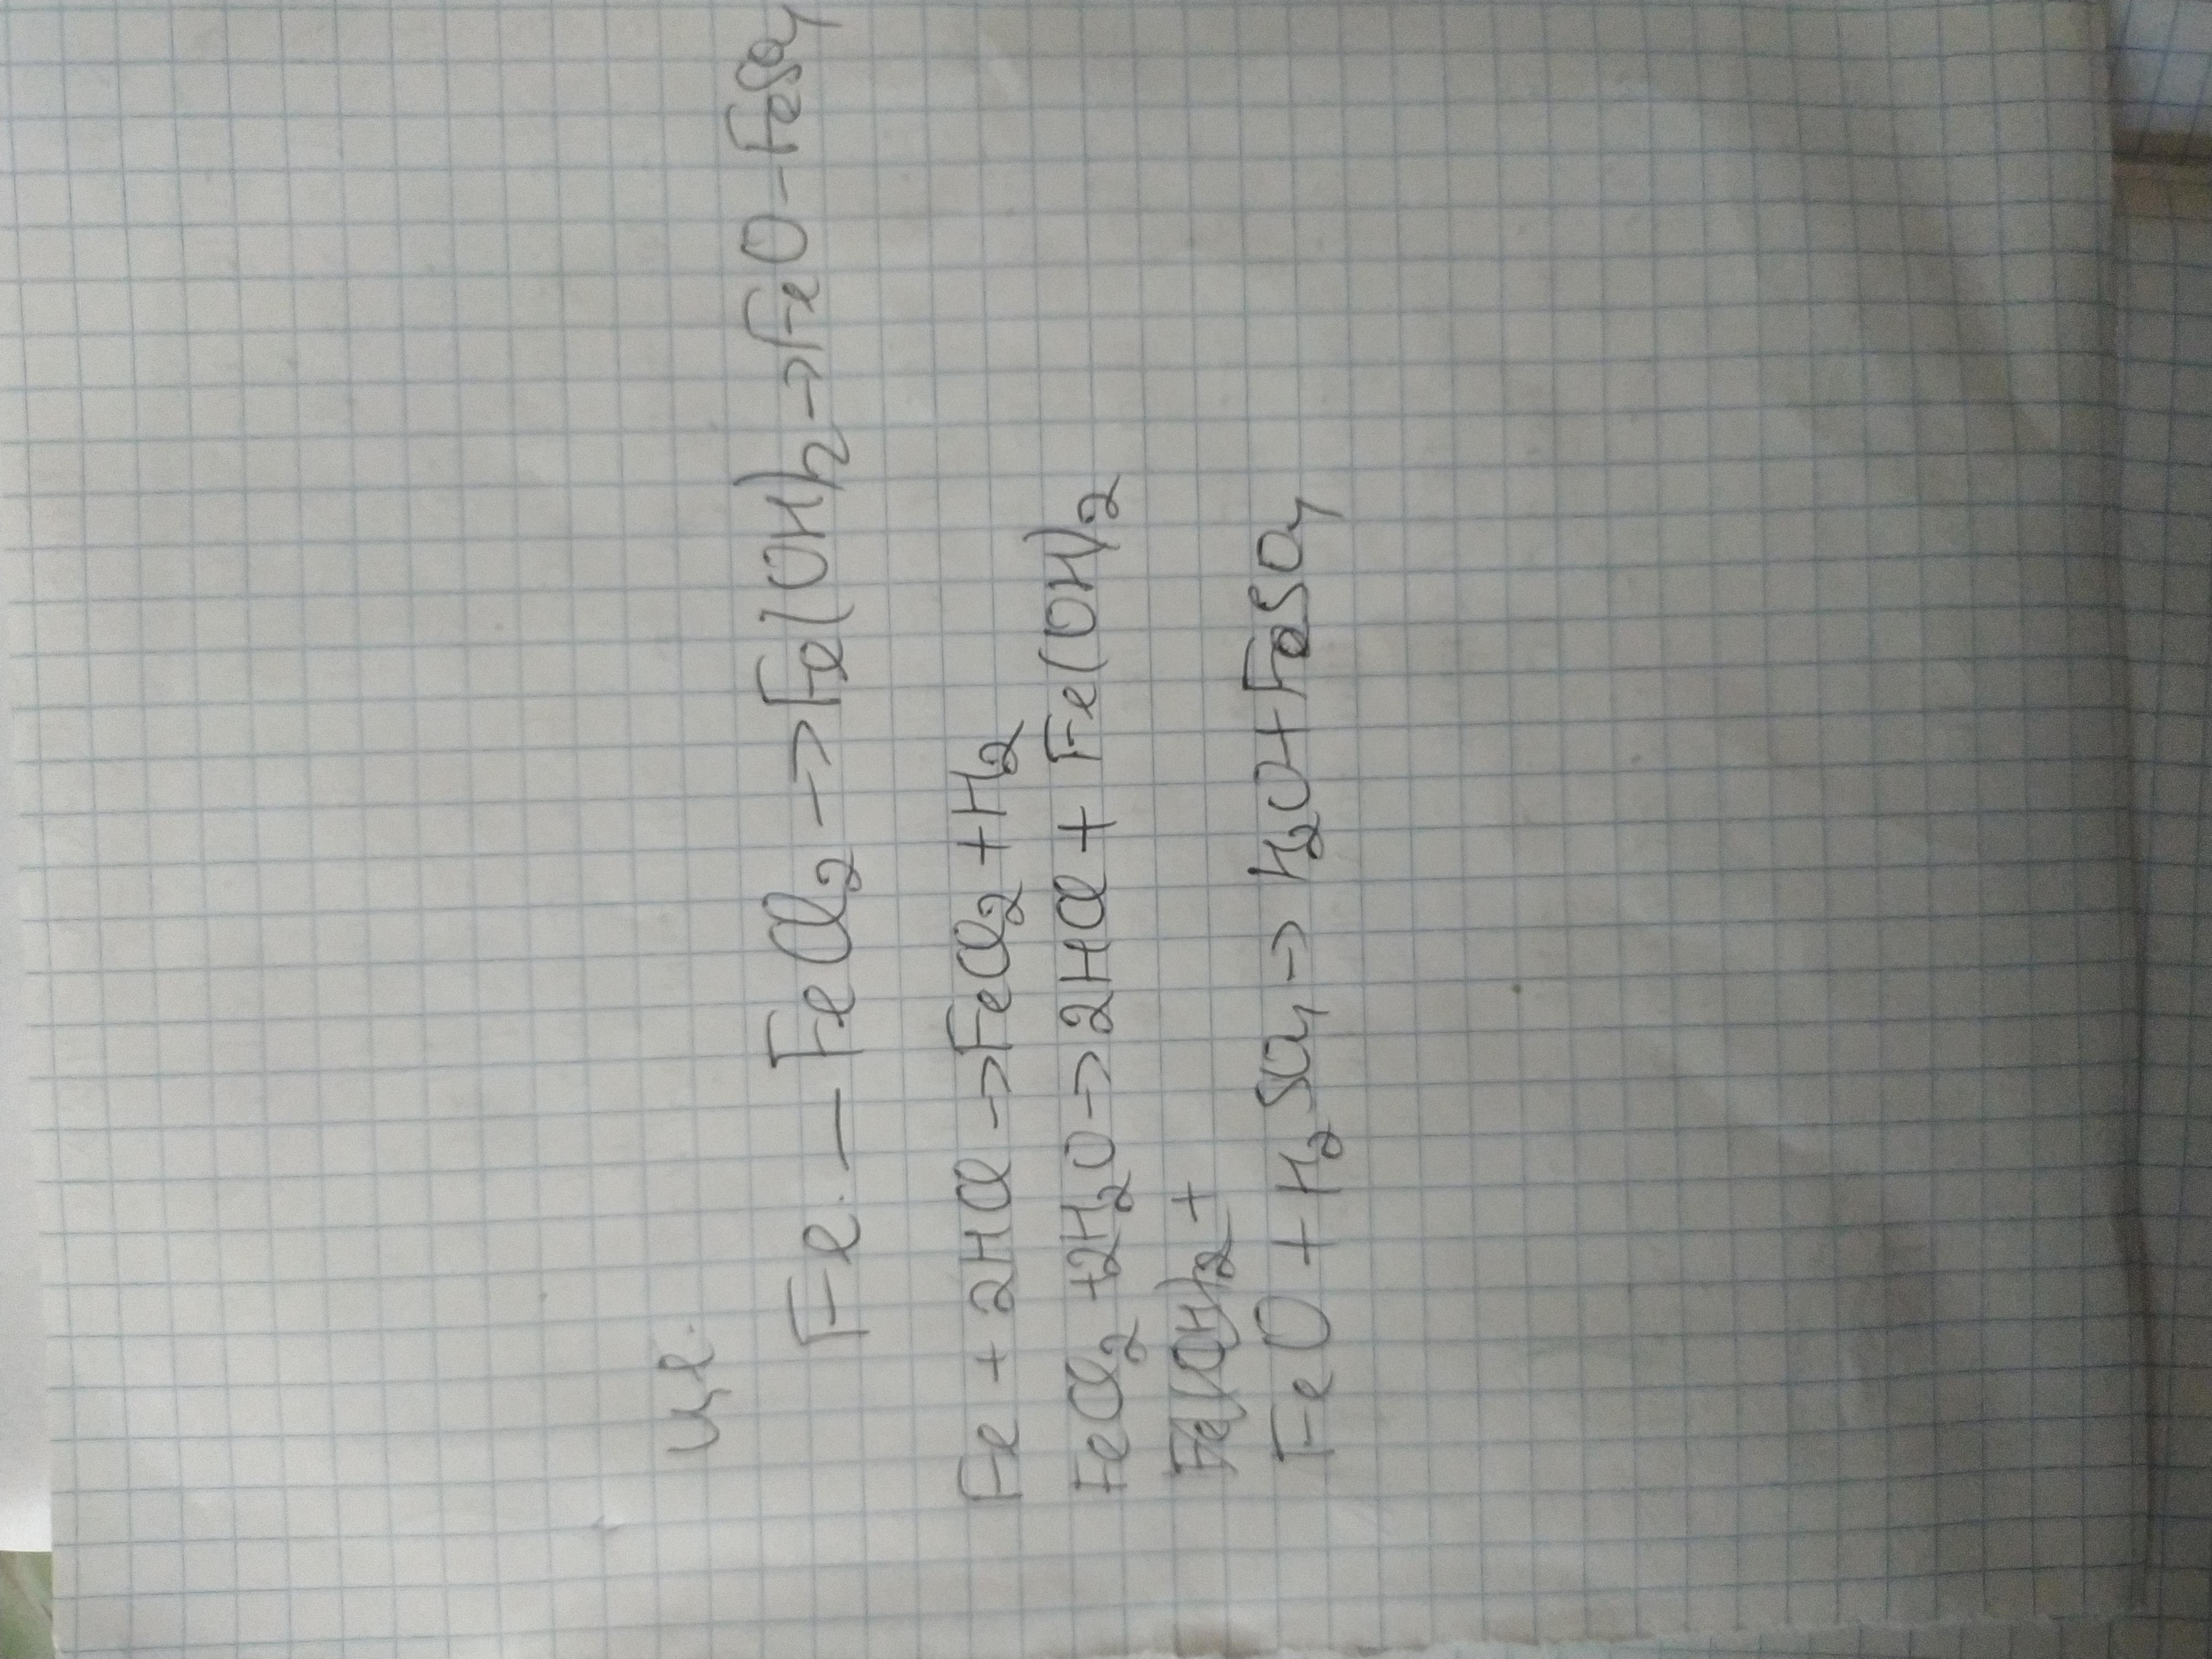 Fe — FeCl₂ → Fe(OH)₂ → FeO - FeSO₄
Fe + 2HCl → FeCl₂ + H₂
FeCl₂ + 2H₂O → 2HCl + Fe(OH)₂
Fe(OH)₂ +
FeO + H₂SO₄ → H₂O + FeSO₄